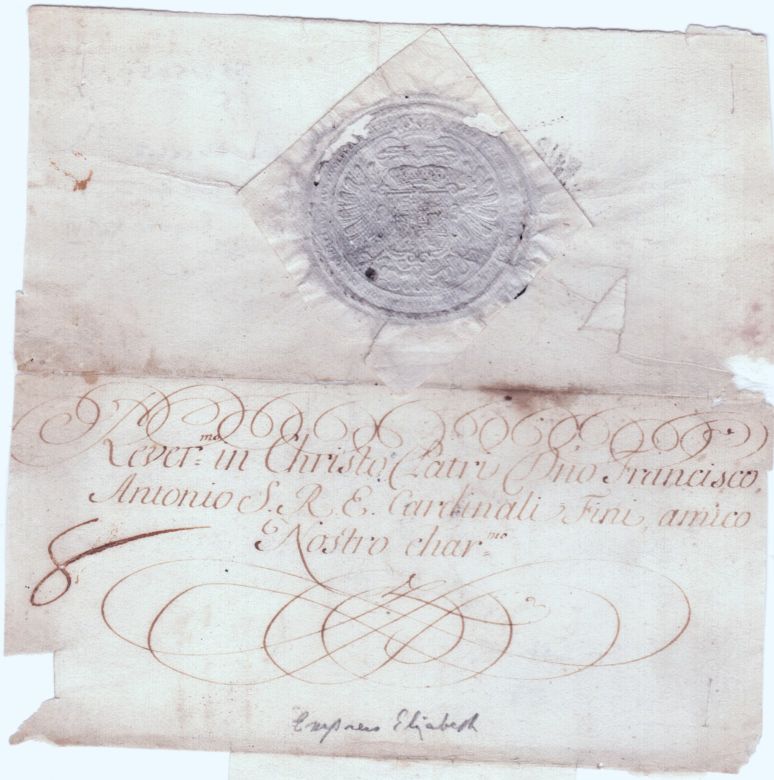 Rever.mo in Christo Patri Dño Francisco
Antonio S. R. E. Cardinali Fini, amico
Nostro char.mo
Empress Elizabeth